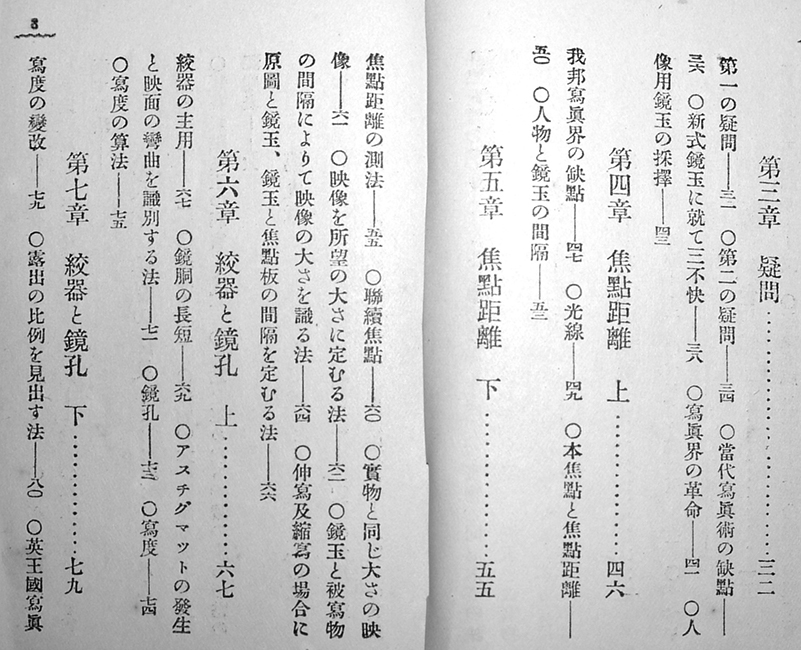 第三章　疑問……………三二
第一の疑問——三二　〇第二の疑問——三四　〇當代寫眞術の缺點——
三六　〇新式鏡玉に就て三不快——三八　〇寫眞界の革命——四一　〇人
像用鏡玉の採擇——四三
第四章　焦點距離　上……………四六
我邦寫眞界の缺點——四七　〇光線——四九　〇本焦點と焦點距離——
五〇　〇人物と鏡玉の間隔——五三
第五章　焦點距離　下……………五五
焦點距離の測法——五五　〇聯續焦點——六〇　〇實物と同じ大さの映
像——六一　〇映像を所望の大さに定むる法——六二　〇鏡玉と被寫物
の間隔によりて映像の大さを識る法——六四　〇伸寫及縮寫の場合に
原圖と鏡玉、鏡玉と焦點板の間隔を定むる法——六六
第六章　絞器と鏡孔　上……………六七
絞器の主用——六七　〇鏡胴の長短——六九　〇アスチグマットの發生
と映面の彎曲を識別する法——七一　〇鏡孔——七三　〇寫度——七四
〇寫度の算法——七五
第七章　絞器と鏡孔　下……………七九
寫度の變改——七九　〇露出の比例を見出す法——八〇　〇英王國寫眞
3